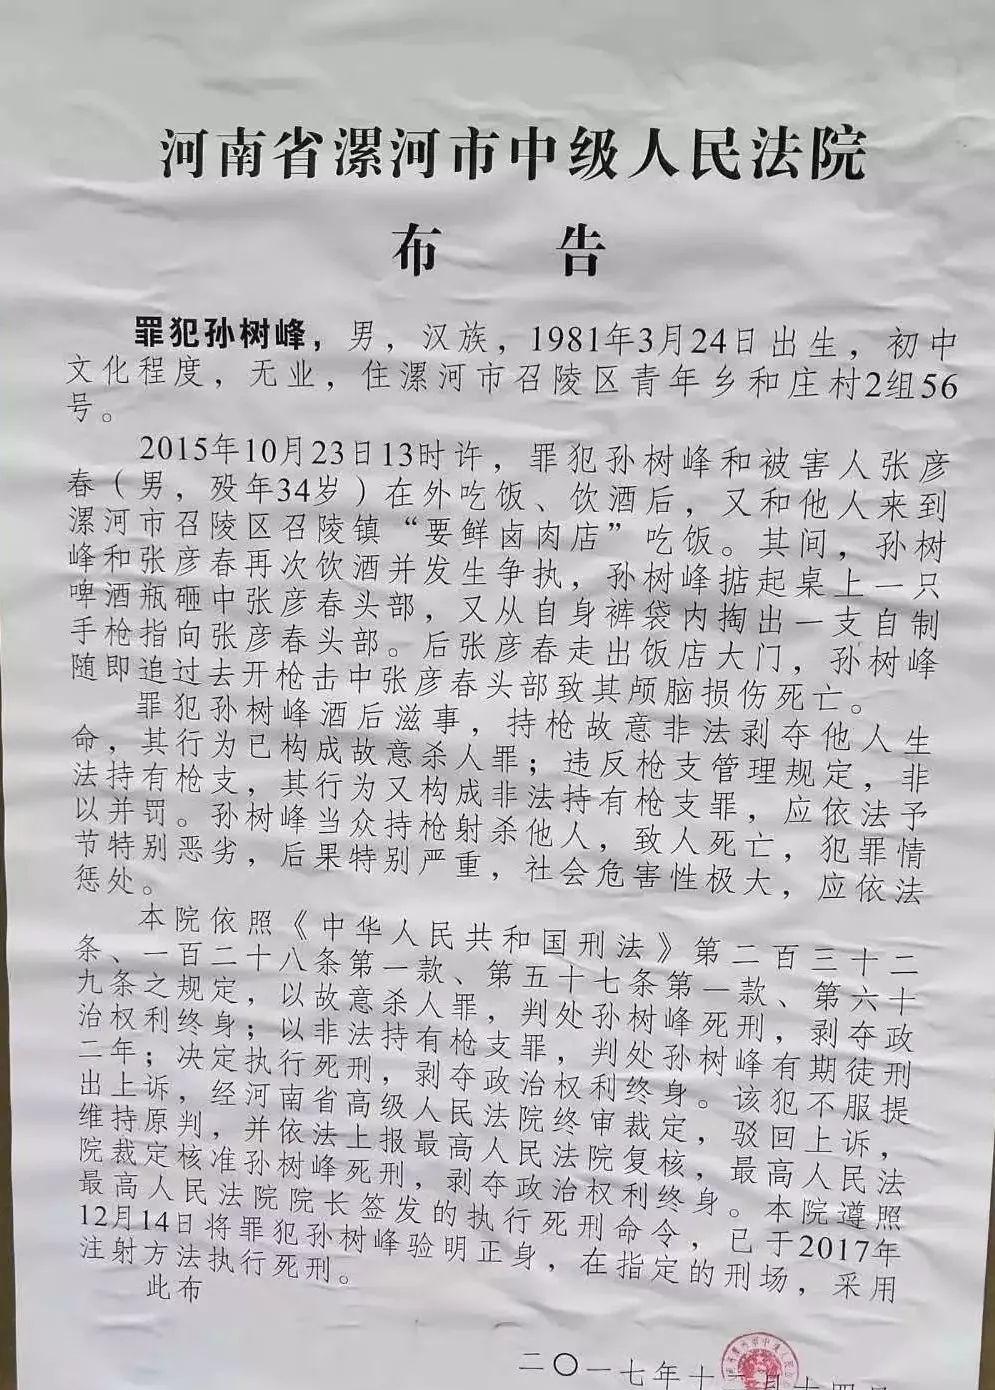 河南省漯河市中级人民法院
布 告
罪犯孙树峰，男，汉族，1981年3月24日出生，初中
文化程度，无业，住漯河市召陵区青年乡和庄村2组56
号。
2015年10月23日13时许，罪犯孙树峰和被害人张彦
春（男，殁年34岁）在外吃饭、饮酒后，又和他人来到
漯河市召陵区召陵镇“要鲜卤肉店”吃饭。其间，孙树
峰和张彦春再次饮酒并发生争执，孙树峰掂起桌上一只
啤酒瓶砸中张彦春头部，又从自身裤袋内掏出一支自制
手枪指向张彦春头部。后张彦春走出饭店大门，孙树峰
随即追过去开枪击中张彦春头部致其颅脑损伤死亡。
罪犯孙树峰酒后滋事，持枪故意非法剥夺他人生
命，其行为已构成故意杀人罪；违反枪支管理规定，非
法持有枪支，其行为又构成非法持有枪支罪，应依法予
以并罚。孙树峰当众持枪射杀他人，致人死亡，犯罪情
节特别恶劣，后果特别严重，社会危害性极大，应依法
惩处。
本院依照《中华人民共和国刑法》第二百三十二
条、一百二十八条第一款、第五十七条第一款、第六十
九条之规定，以故意杀人罪，判处孙树峰死刑，剥夺政
治权利终身；以非法持有枪支罪，判处孙树峰有期徒刑
二年；决定执行死刑，剥夺政治权利终身。该犯不服提
出上诉，经河南省高级人民法院终审裁定，驳回上诉，
维持原判，并依法上报最高人民法院复核，最高人民法
院裁定核准孙树峰死刑，剥夺政治权利终身。本院遵照
最高人民法院院长签发的执行死刑命令，已于2017年
12月14日将罪犯孙树峰验明正身，在指定的刑场，采用
注射方法执行死刑。
此布
二〇一七年十二月十四日